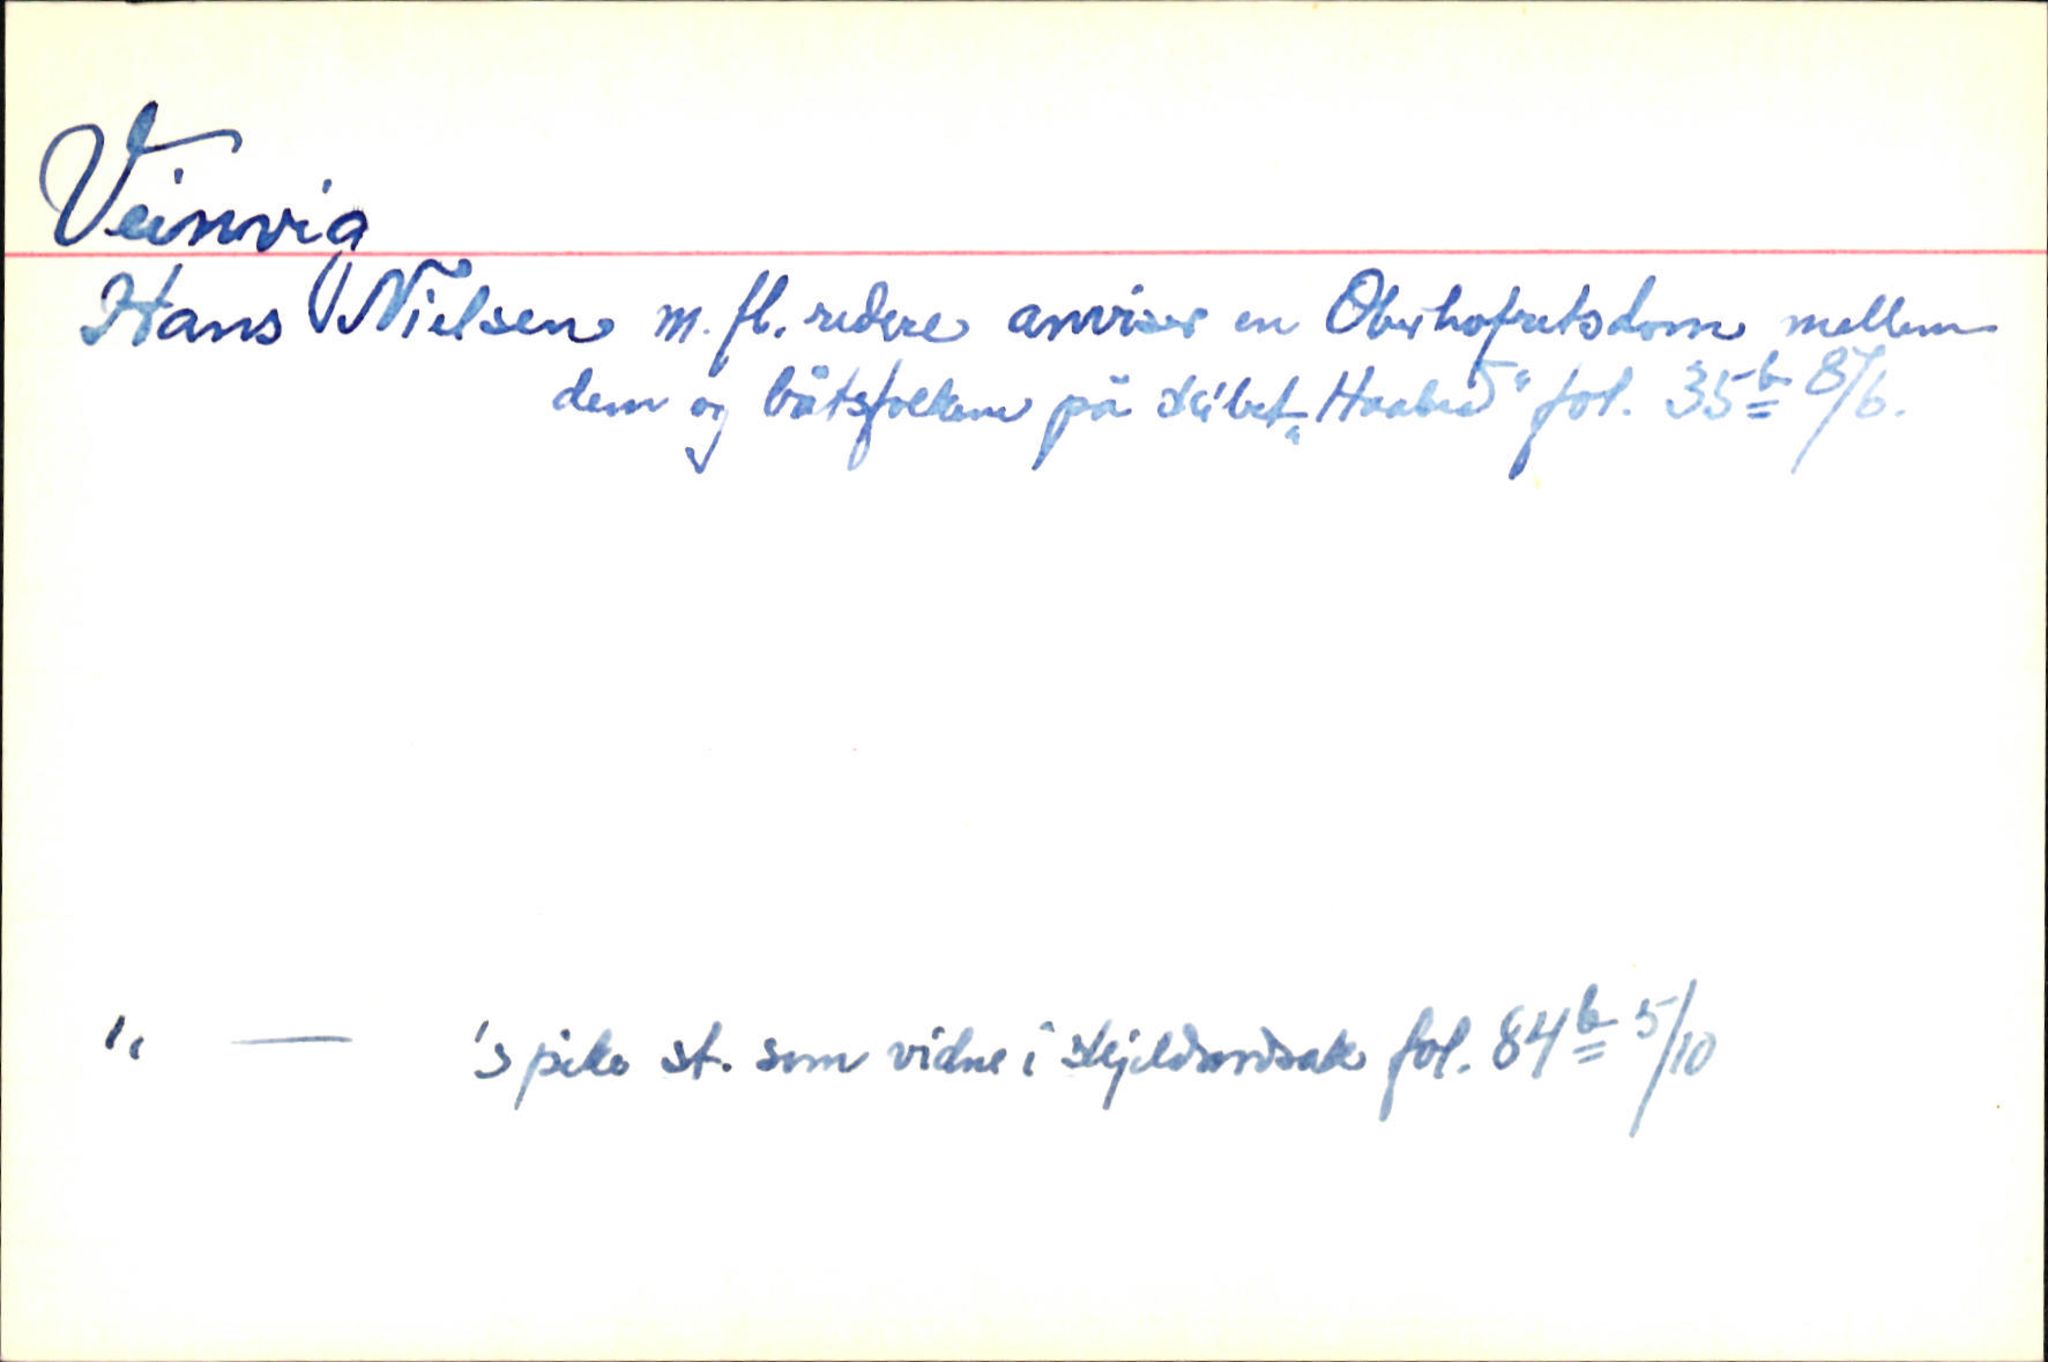 Veinvig
Hans Nielsen m. fl. redere anviser en Oberhofretsdom mellem
dem og båtsfolkene på skibet „Haabed" fol. 35 b 8/6.
" — 's pike st. som vidne i skjeldsordsak fol. 84 b 5/10